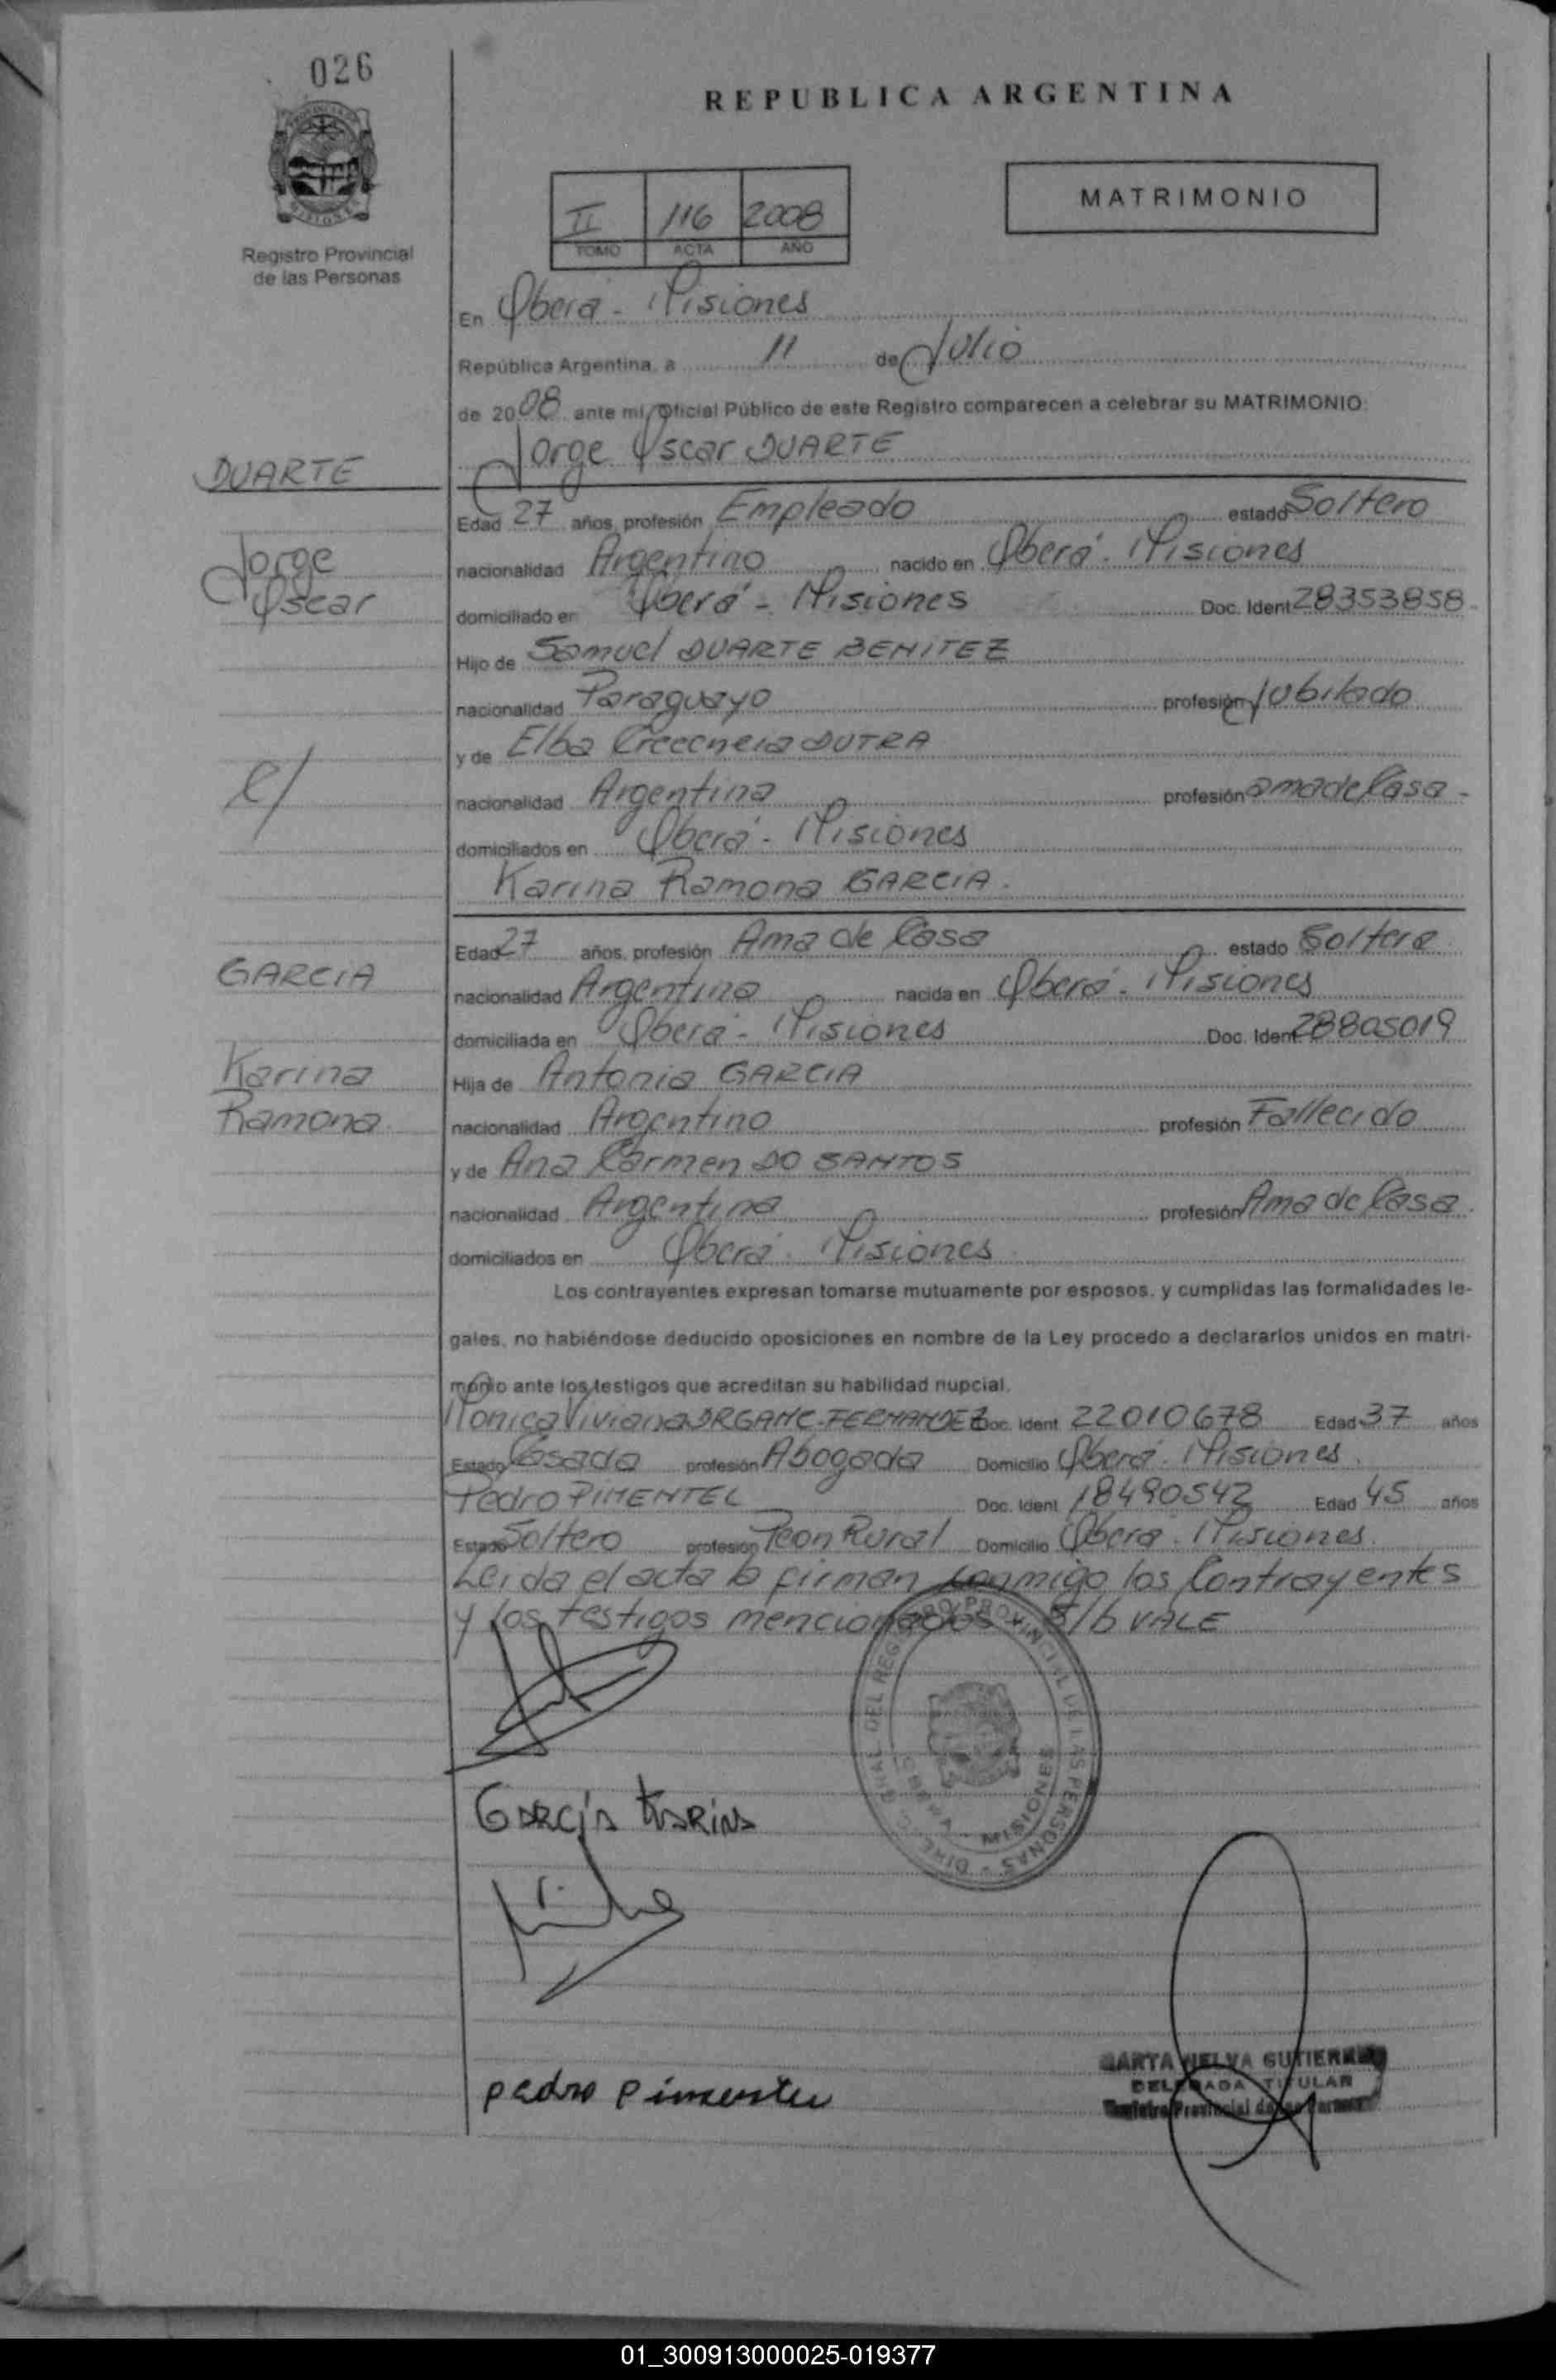 026
REPUBLICA ARGENTINA
Registro Provincial
de las Personas
II 116 2008
TOMO ACTA AÑO
MATRIMONIO
En Oberá - Misiones
República Argentina, a 11 de Julio
de 2008 ante mi, Oficial Público de este Registro comparecen a celebrar su MATRIMONIO:
Jorge Oscar DUARTE
DUARTE
Jorge
Oscar
Edad 27 años, profesión Empleado estado Soltero
nacionalidad Argentino nacido en Oberá - Misiones
domiciliado en Oberá - Misiones Doc. Ident 28353858-
Hijo de Samuel DUARTE BENITEZ
nacionalidad Paraguayo profesión Jubilado
y de Elba Crecencia DUTRA
nacionalidad Argentina profesión ama de Casa -
domiciliados en Oberá - Misiones
c/
Karina Ramona GARCIA.
Edad 27 años, profesión Ama de Casa estado Soltera
GARCIA
Karina
Ramona
nacionalidad Argentina nacida en Oberá - Misiones
domiciliada en Oberá - Misiones Doc. Ident 28805019
Hija de Antonio GARCIA
nacionalidad Argentino profesión Fallecido
y de Ana Carmen DO SANTOS
nacionalidad Argentina profesión Ama de Casa.
domiciliados en Oberá - Misiones
Los contrayentes expresan tomarse mutuamente por esposos, y cumplidas las formalidades le-
gales, no habiéndose deducido oposiciones en nombre de la Ley procedo a declararlos unidos en matri-
monio ante los testigos que acreditan su habilidad nupcial.
Monica Viviana FERNANDEZ Doc. Ident 22010678 Edad 37 años
Estado Casada profesión Abogada Domicilio Oberá - Misiones.
Pedro PIMENTEL Doc. Ident 18490542 Edad 45 años
Estado Soltero profesión Peon Rural Domicilio Oberá - Misiones.
Leida el acta la firman conmigo los Contrayentes
y los testigos mencionados - S/b VALE
DIREC. GRAL. DEL REGISTRO PROVINCIAL DE LAS PERSONAS -
OBERA - MISIONES
García Karina
pedro Pimentel
MARTA NELVA GUTIERREZ
DELEGADA TITULAR
Registro Provincial de las Personas
01_300913000025-019377